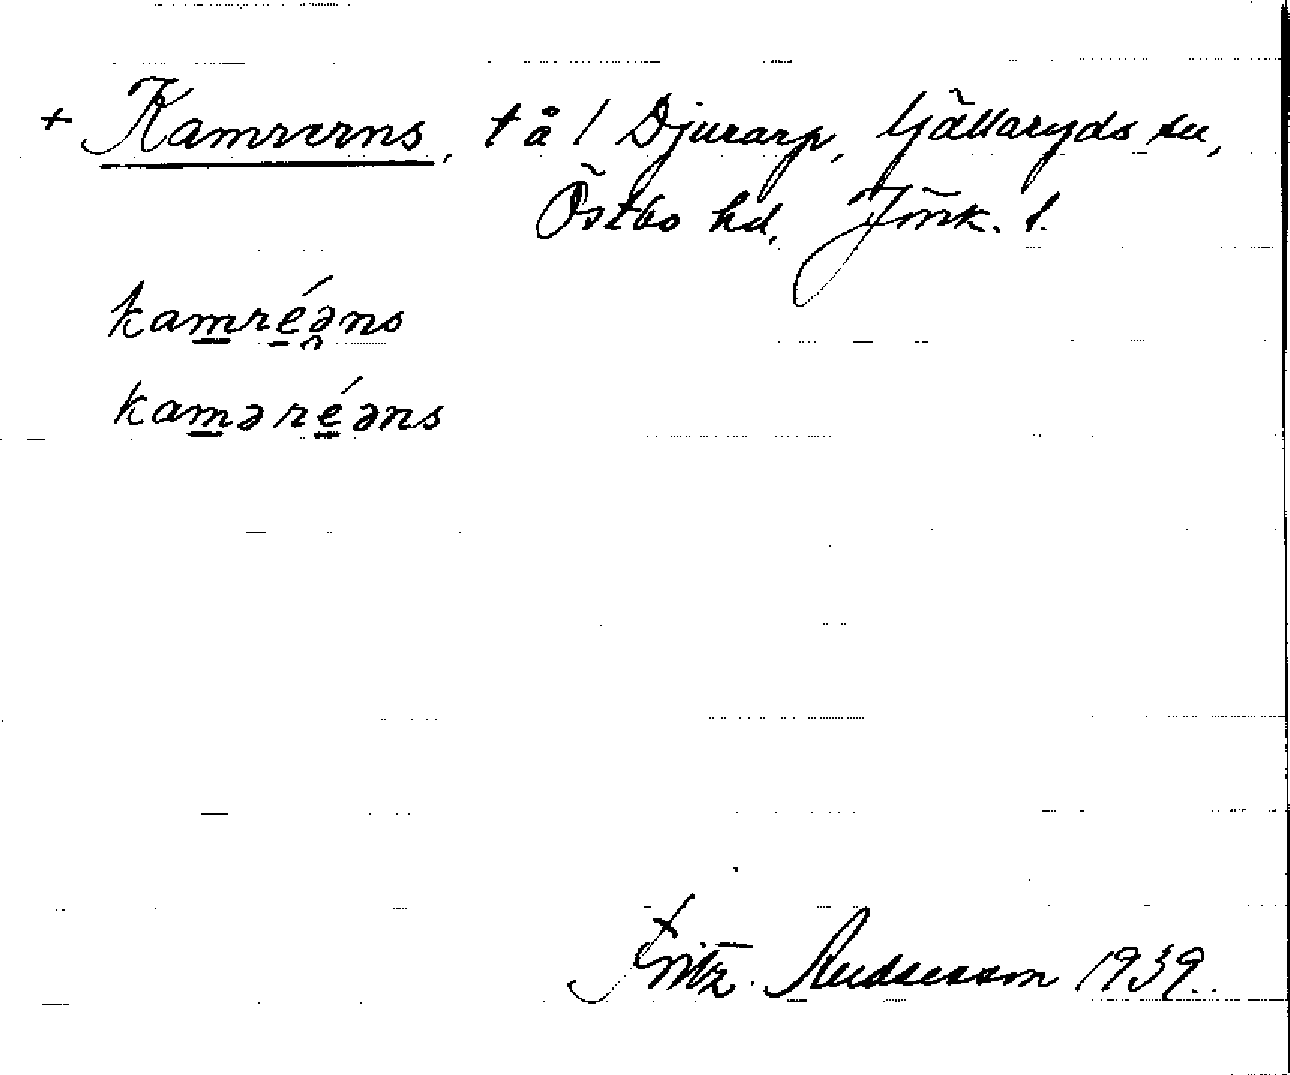 + Kamrerns, t å / Djurarp, Gällaryds sn,
Östbo hd, Jmk. l.
kamréəns
kamәréəns
Fritz Andersson 1939.